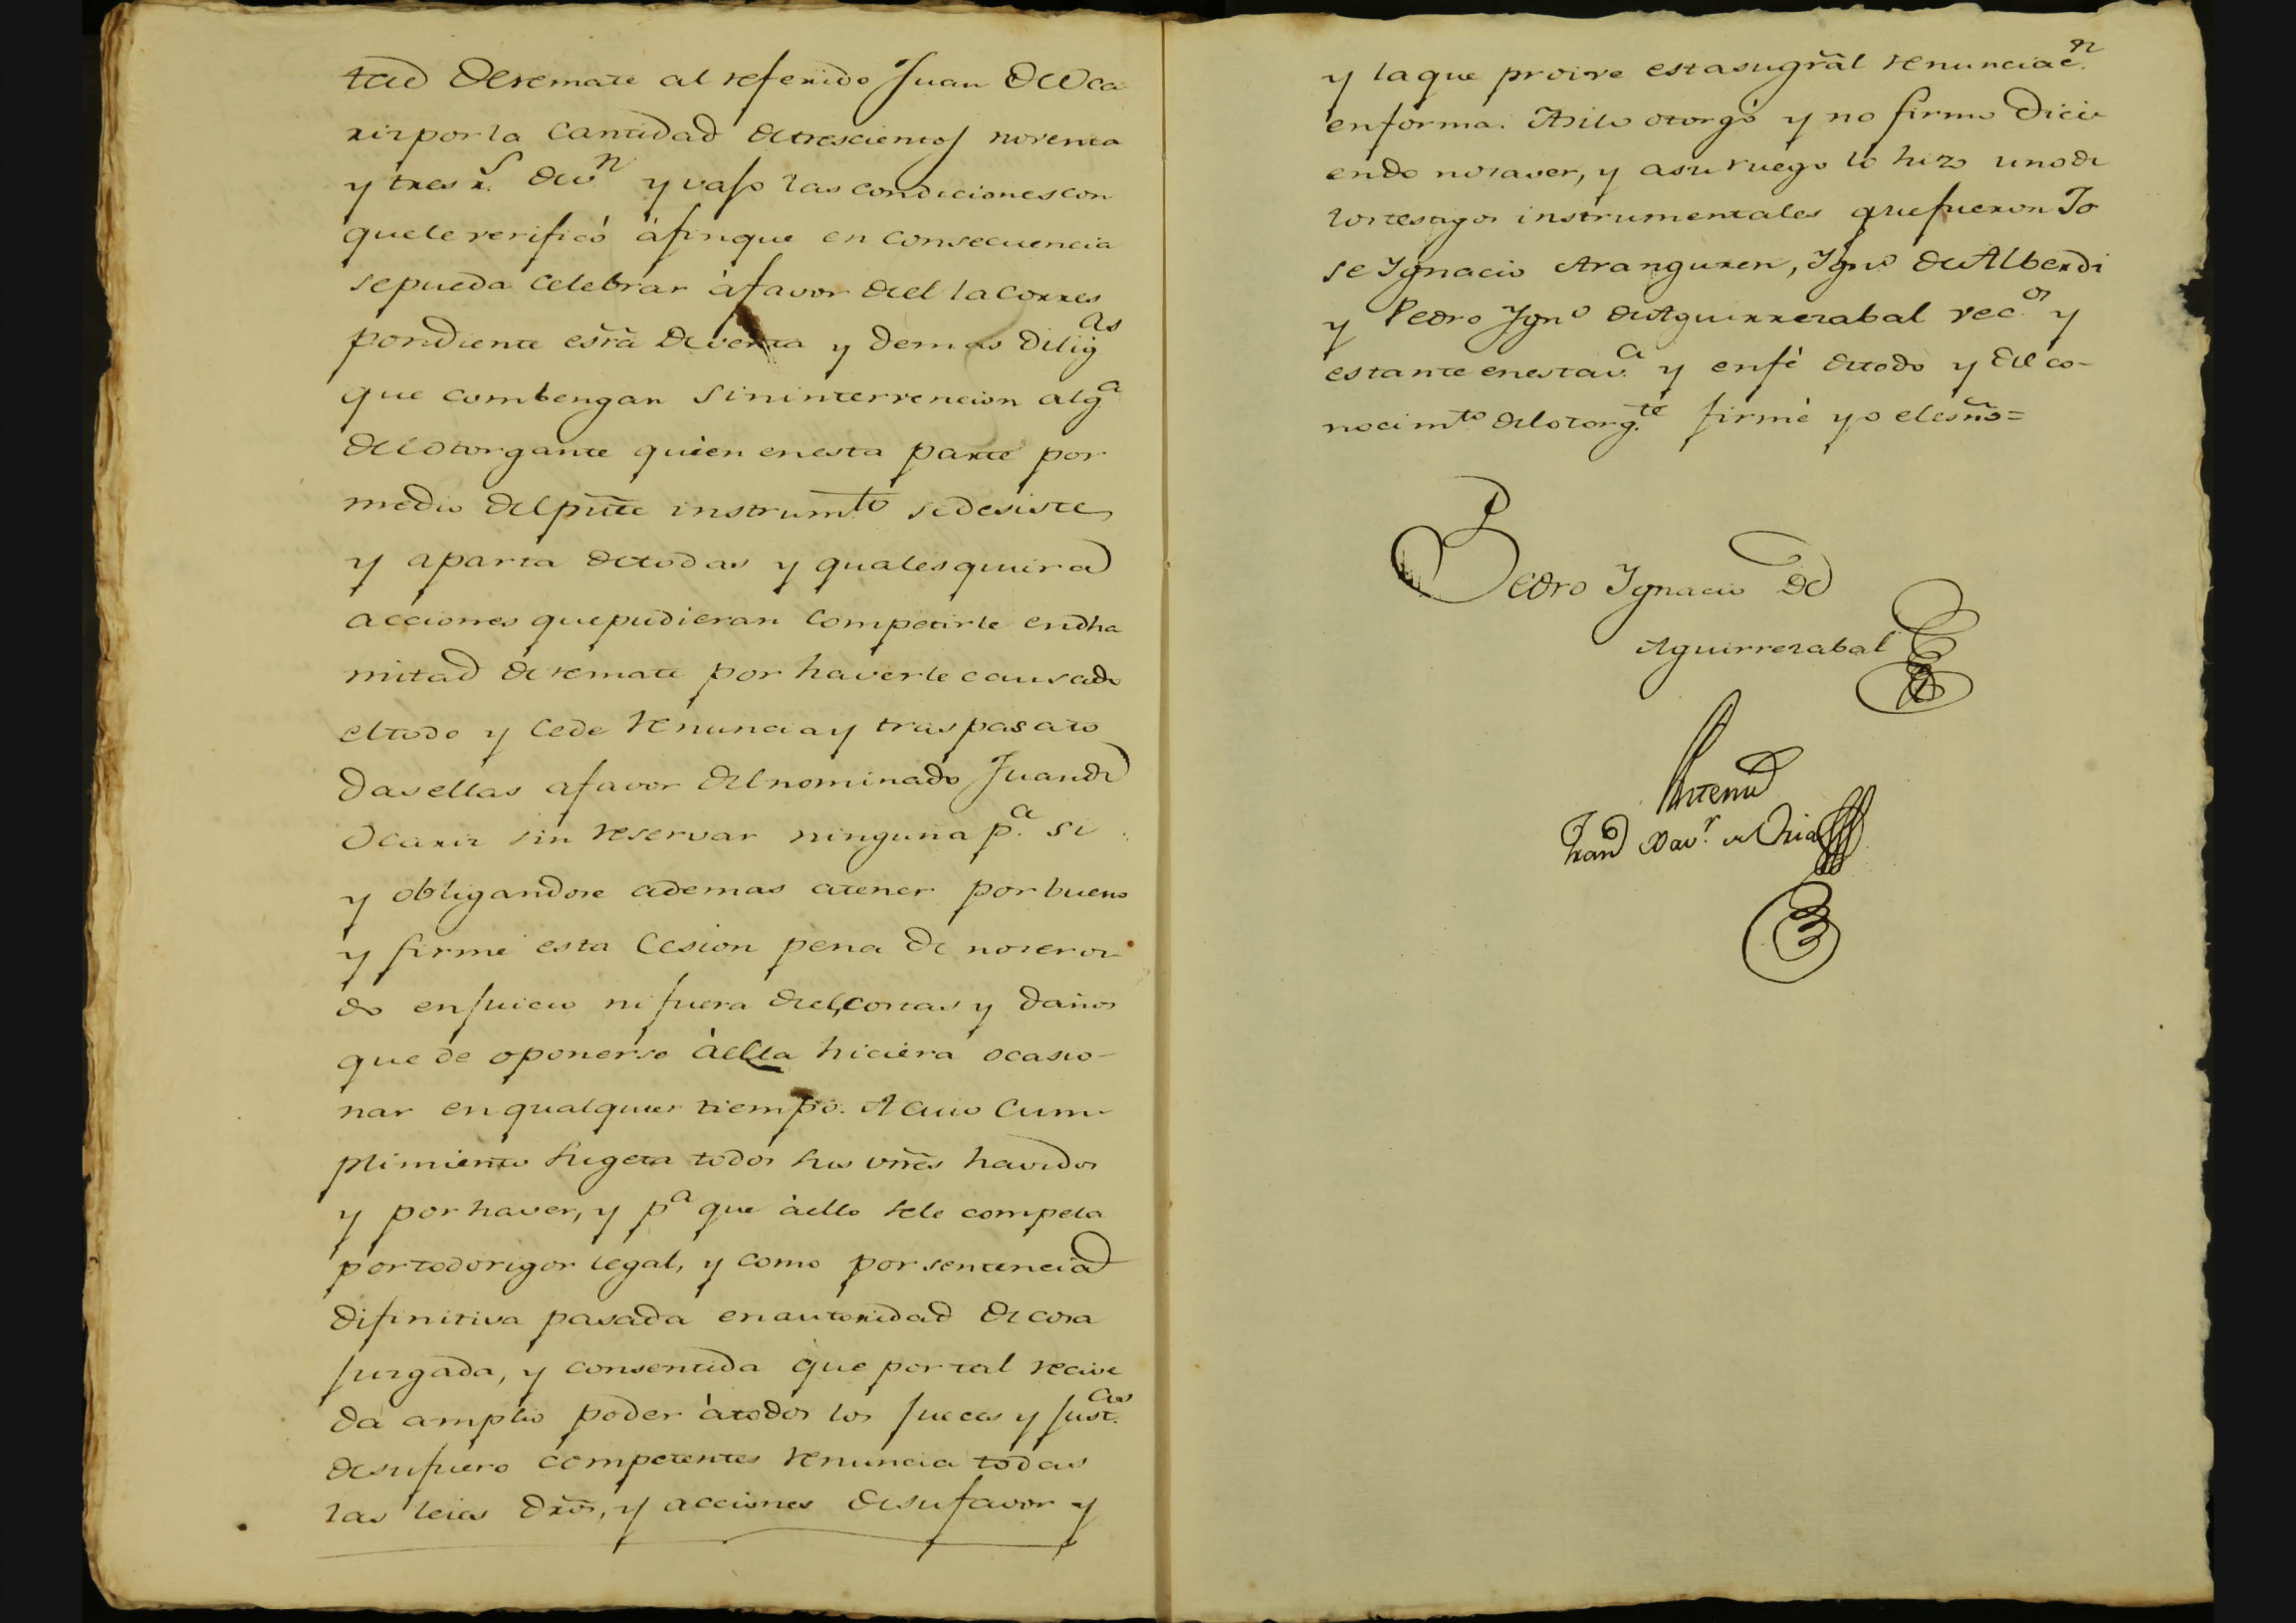 tad de remate al referido Juan de Oca
riz por la cantidad de trescientos noventa
y tres r.s de v.n y vajo las condiciones con
que le verificó á fin que en consecuencia
se pueda celebrar á favor de el la corres
pondiente esrã de venta y demas dilig.as
que combengan sin intervencion alg.a
del otorgante quien en esta parte por
medio del pñte instrum.to se desiste
y aparta de todas y qualesquiera
acciones que pudieran competirle en dha
mitad de remate por haverle causado
el todo y cede renuncia y traspasa to
das ellas a favor del nominado Juan de
Ocariz sin reservar ninguna p.a si
y obligandose ademas a tener por bueno
y firme esta Cesion pena de no ser oi
do en juicio ni fuera de el, costas y daños
que de oponerse á ella hiciera ocasio-
nar en qualquier tiempo. A cuio cum-
plimiento sugeta todos sus vñes havidos
y por haver, y p.a que á ello se le compela
por todo rigor legal, y como por sentencia
difinitiva pasada en autoridad de cosa
juzgada, y consentida que por tal recive
da amplio poder á todos los jueces y just.cias
de su fuero competentes renuncia todas
las leies dr̃os, y acciones de su favor y
y la que proive esta su gr̃al renunciac.n
en forma. Asi lo otorgó y no firmo dici
endo no saver, y a su ruego lo hizo uno de
los testigos instrumentales que fueron Jo
se Ygnacio Aranguren, Ygn.o de Alberdi
y Pedro Ygn.o de Aguirrezabal vec.os y
estante en esta v.a y en fé de todo y del co-
nocim.to del otorg.te firmé yo el esño=
Pedro Ygnacio de
Aguirrezabal
Ante mi
Fran.co Xav.r de Oria